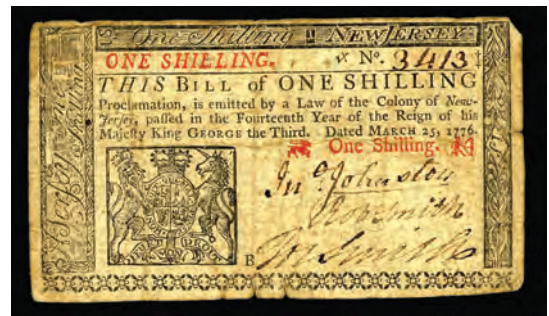 One Shilling NEW JERSEY
ONE SHILLING. No. 3413
THIS BILL of ONE SHILLING
Proclamation, is emitted by a Law of the Colony of New-
Jersey, passed in the Fourteenth Year of the Reign of his
Majesty King GEORGE the Third. Dated MARCH 25, 1776.
One Shilling.
Jno. Johnston
Robt Smith
Jos Smith
B